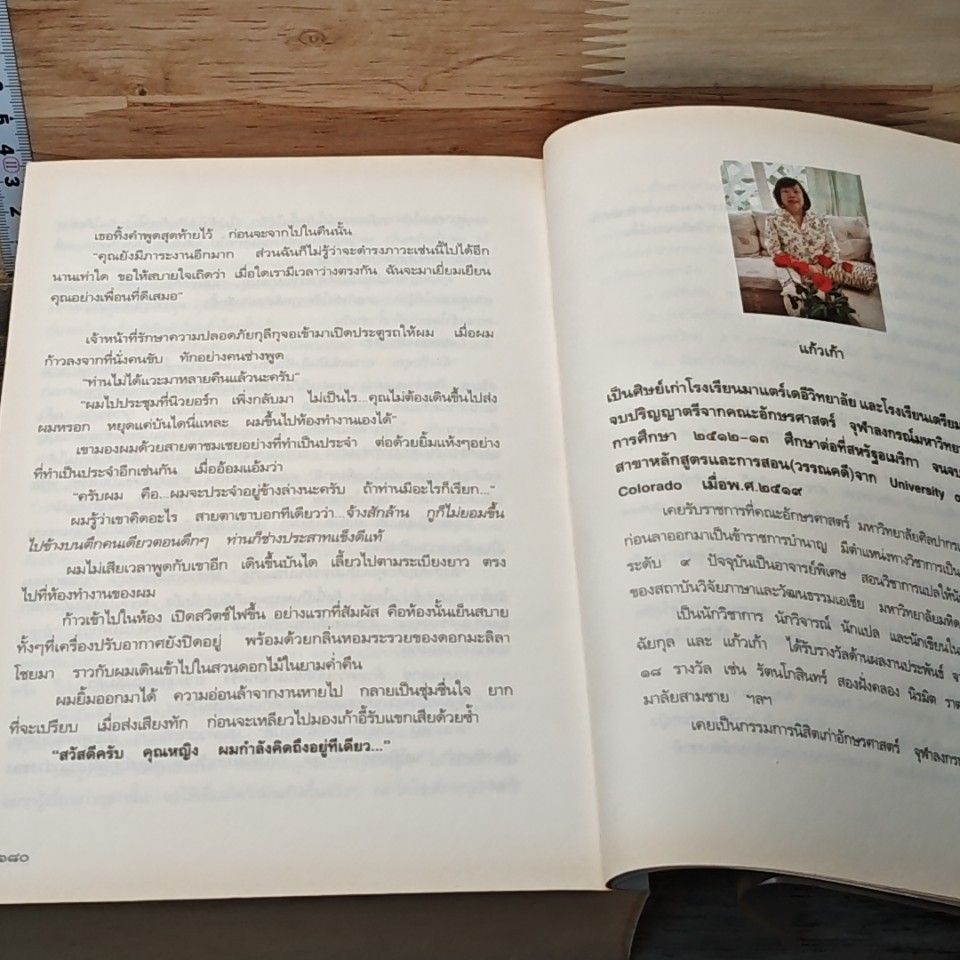 5
4
3
2
เธอทิ้งคำพูดสุดท้ายไว้ ก่อนจะจากไปในคืนนั้น
"คุณยังมีภาระงานอีกมาก ส่วนฉันก็ไม่รู้ว่าจะดำรงภาวะเช่นนี้ไปได้อีก
นานเท่าใด ขอให้สบายใจเถิดว่า เมื่อใดเรามีเวลาว่างตรงกัน ฉันจะมาเยี่ยมเยียน
คุณอย่างเพื่อนที่ดีเสมอ"
เจ้าหน้าที่รักษาความปลอดภัยกุลีกุจอเข้ามาเปิดประตูรถให้ผม เมื่อผม
ก้าวลงจากที่นั่งคนขับ ทักอย่างคนช่างพูด
"ท่านไม่ได้แวะมาหลายคืนแล้วนะครับ"
"ผมไปประชุมที่นิวยอร์ก เพิ่งกลับมา ไม่เป็นไร...คุณไม่ต้องเดินขึ้นไปส่ง
ผมหรอก หยุดแค่บันไดนี่แหละ ผมขึ้นไปห้องทำงานเองได้"
เขามองผมด้วยสายตาชมเชยอย่างที่ทำเป็นประจำ ต่อด้วยยิ้มแห้งๆอย่าง
ที่ทำเป็นประจำอีกเช่นกัน เมื่ออ้อมแอ้มว่า
"ครับผม คือ...ผมจะประจำอยู่ข้างล่างนะครับ ถ้าท่านมีอะไรก็เรียก..."
ผมรู้ว่าเขาคิดอะไร สายตาเขาบอกทีเดียวว่า...จ้างสักล้าน กูก็ไม่ยอมขึ้น
ไปข้างบนตึกคนเดียวตอนดึกๆ ท่านก็ช่างประสาทแข็งดีแท้
ผมไม่เสียเวลาพูดกับเขาอีก เดินขึ้นบันได เลี้ยวไปตามระเบียงยาว ตรง
ไปที่ห้องทำงานของผม
ก้าวเข้าไปในห้อง เปิดสวิตช์ไฟขึ้น อย่างแรกที่สัมผัส คือห้องนั้นเย็นสบาย
ทั้งๆที่เครื่องปรับอากาศยังปิดอยู่ พร้อมด้วยกลิ่นหอมระรวยของดอกมะลิลา
โชยมา ราวกับผมเดินเข้าไปในสวนดอกไม้ในยามค่ำคืน
ผมยิ้มออกมาได้ ความอ่อนล้าจากงานหายไป กลายเป็นชุ่มชื่นใจ ยาก
ที่จะเปรียบ เมื่อส่งเสียงทัก ก่อนจะเหลียวไปมองเก้าอี้รับแขกเสียด้วยซ้ำ
"สวัสดีครับ คุณหญิง ผมกำลังคิดถึงอยู่ทีเดียว..."
๖๘๐
แก้วเก้า
เป็นศิษย์เก่าโรงเรียนมาแตร์เดอีวิทยาลัย และโรงเรียนเตรียม
จบปริญญาตรีจากคณะอักษรศาสตร์ จุฬาลงกรณ์มหาวิทยา
การศึกษา ๒๕๑๒-๑๓ ศึกษาต่อที่สหรัฐอเมริกา จนจบ
สาขาหลักสูตรและการสอน(วรรณคดี)จาก University o
Colorado เมื่อพ.ศ.๒๕๑๙
เคยรับราชการที่คณะอักษรศาสตร์ มหาวิทยาลัยศิลปากร
ก่อนลาออกมาเป็นข้าราชการบำนาญ มีตำแหน่งทางวิชาการเป็น
ระดับ ๙ ปัจจุบันเป็นอาจารย์พิเศษ สอนวิชาการแปลให้นัก
ของสถาบันวิจัยภาษาและวัฒนธรรมเอเชีย มหาวิทยาลัยมหิด
เป็นนักวิชาการ นักวิจารณ์ นักแปล และนักเขียนใน
ฉัยกุล และ แก้วเก้า ได้รับรางวัลด้านผลงานประพันธ์ จา
๑๘ รางวัล เช่น รัตนโกสินทร์ สองฝั่งคลอง นิรมิต ราต
มาลัยสามชาย ฯลฯ
เคยเป็นกรรมการนิสิตเก่าอักษรศาสตร์ จุฬาลงกรณ